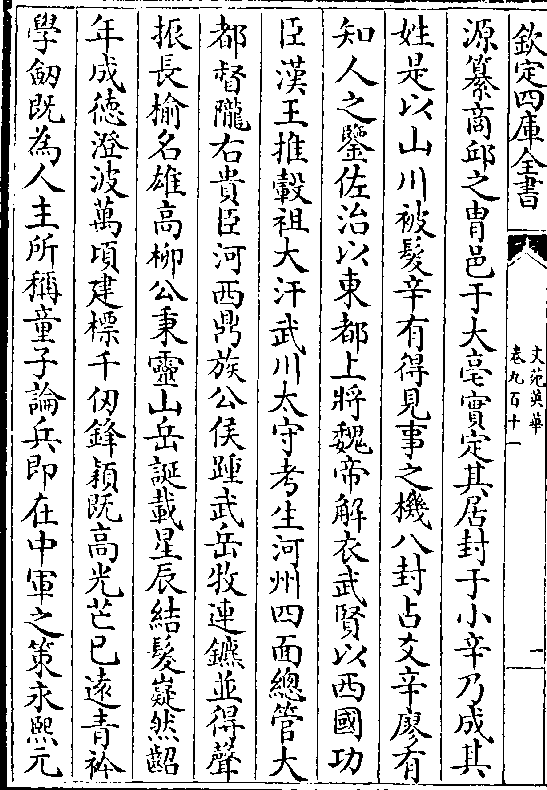 欽定四庫全書
文苑英華
卷九百十一
一
源纂商邱之胄邑于大亳實定其居封于小辛乃成其
姓是以山川被髮辛有得見事之機八封占爻辛廖有
知人之鑒佐治以東都上將魏帝解衣武賢以西國功
臣漢王推轂祖大汗武川太守考生河州四面總管大
都督隴右貴臣河西鼎族公侯踵武岳牧連鑣並得聲
振長榆名雄高柳公秉靈山岳誕載星辰結髮嶷然齠
年成徳澄波萬頃建標千仞鋒穎既高光芒已遠青衿
學劒既為人主所稱童子論兵即在中軍之策永熙元